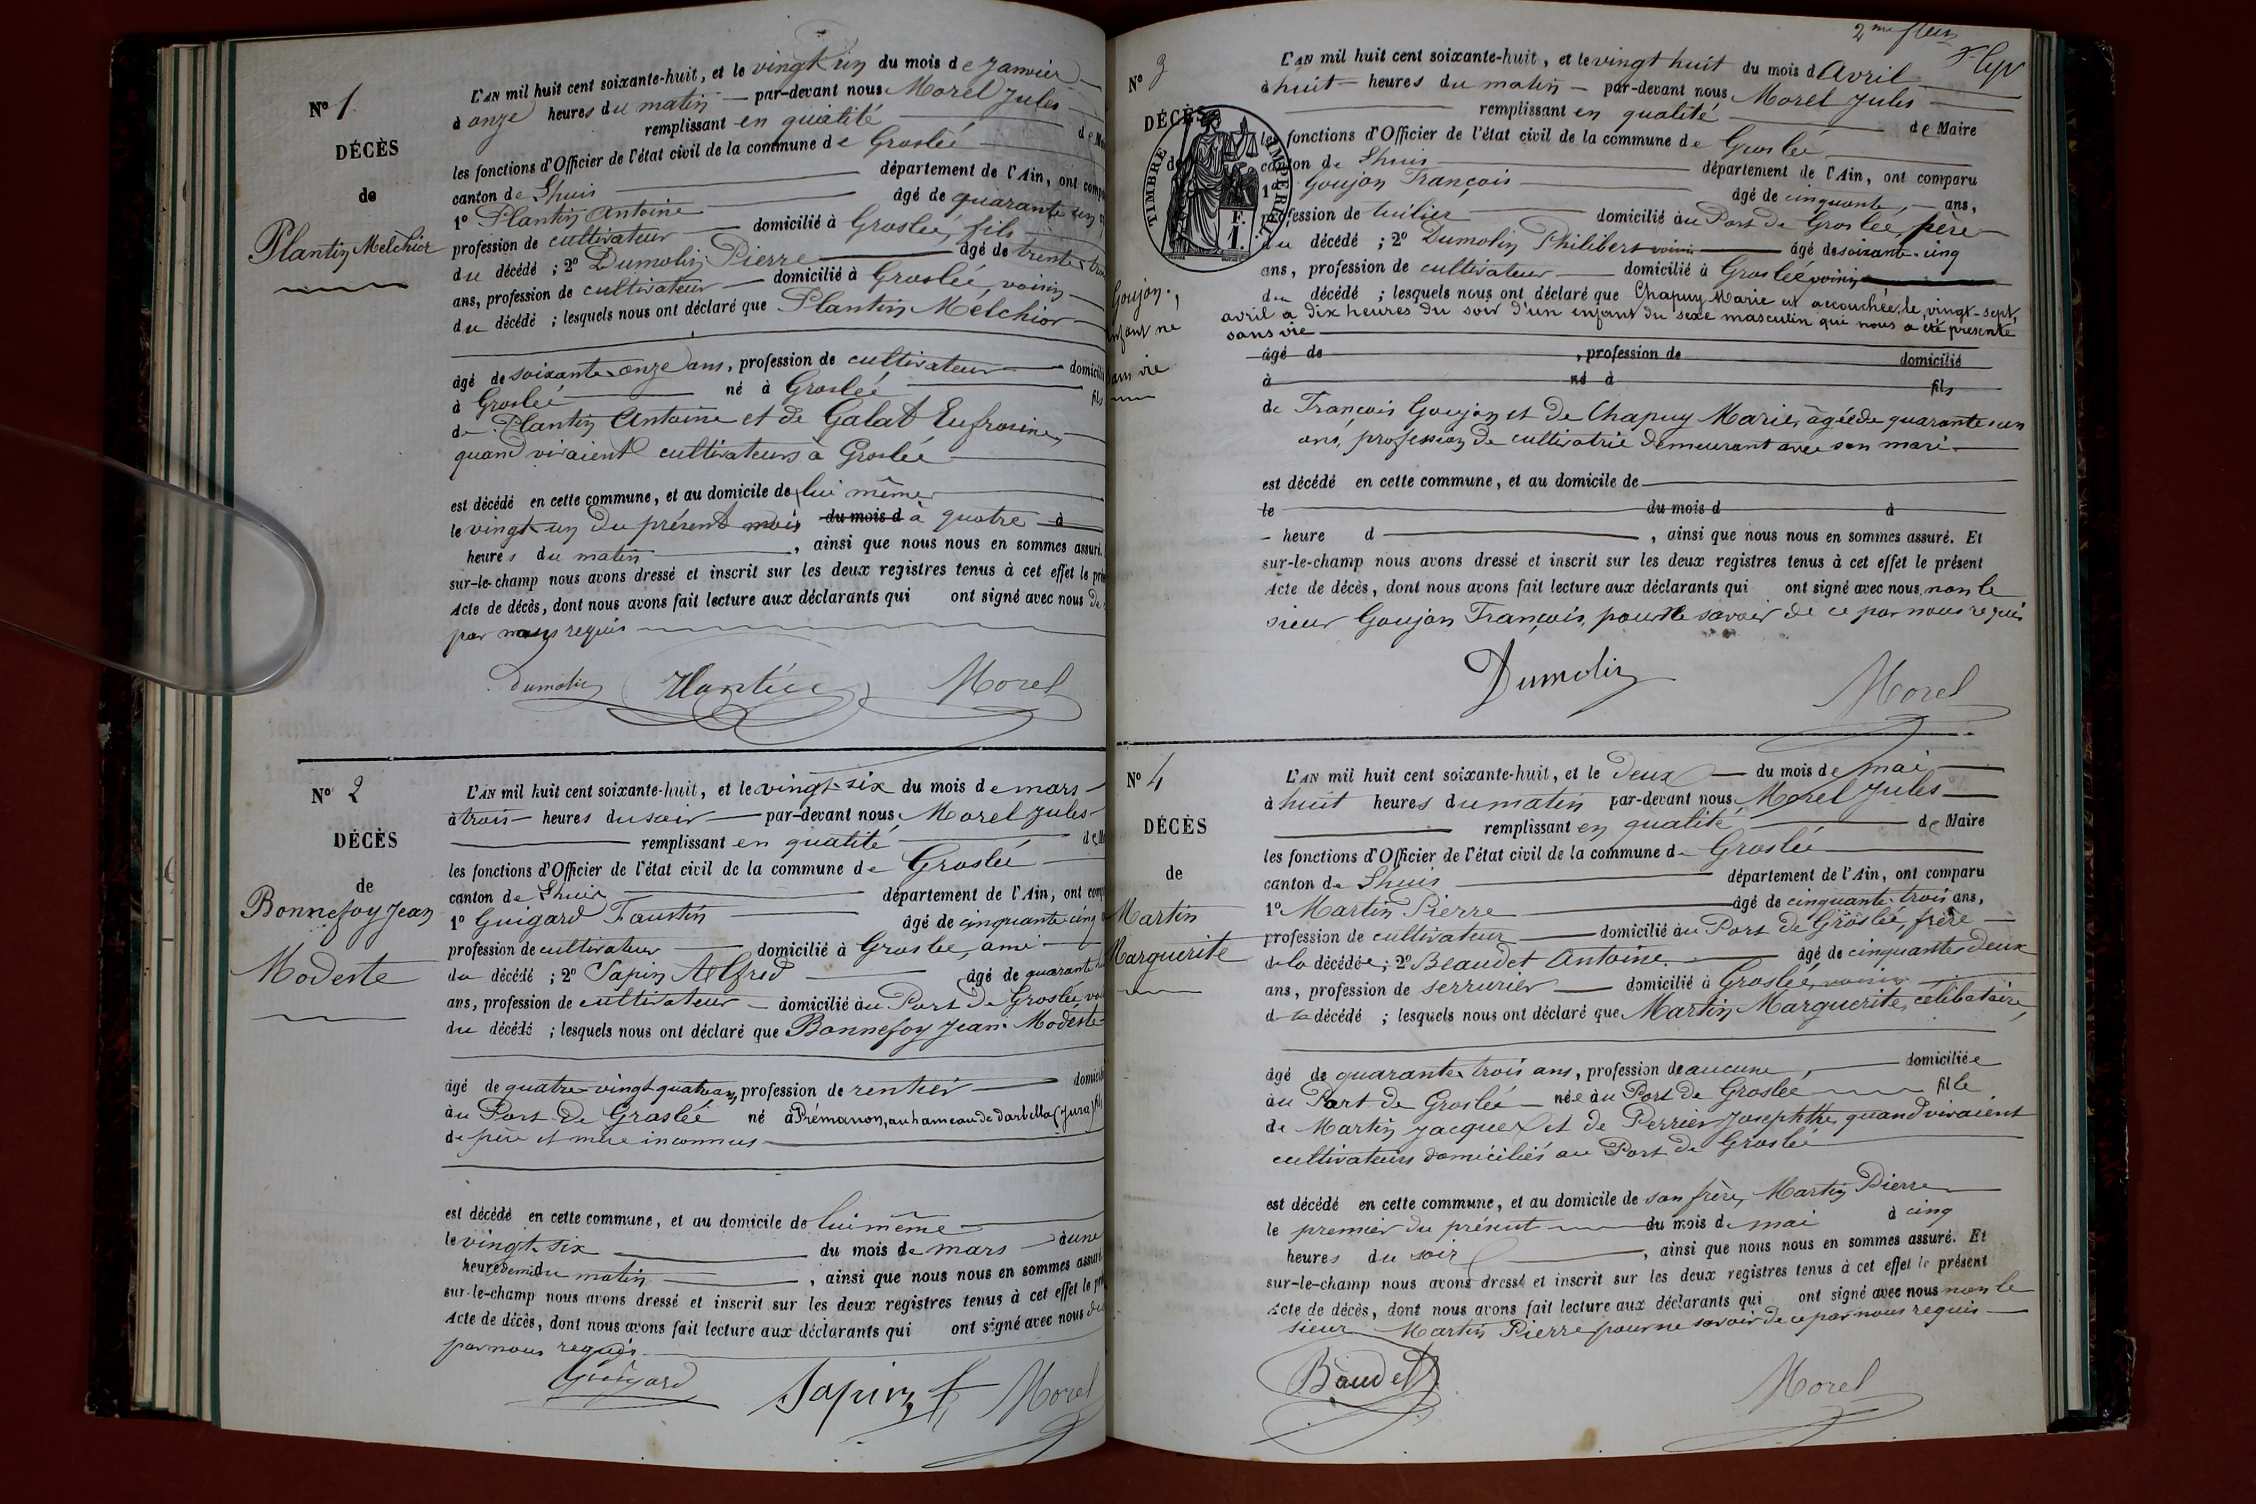 N° 1
DÉCÈS
de
Plantin Melchior
L'AN mil huit cent soixante-huit, et le vingt un du mois de janvier
à onze heures du matin par-devant nous Morel Jules
remplissant en qualité de
les fonctions d'Officier de l'état civil de la commune de Groslée
canton de Lhuis département de l'Ain, ont
1° Plantin Antoine âgé de quarante un
profession de cultivateur domicilié à Groslée, fils
du décédé ; 2° Dumolin Pierre âgé de trente
ans, profession de cultivateur domicilié à Groslée, voisin
du décédé ; lesquels nous ont déclaré que Plantin Melchior
âgé de soixante onze ans, profession de cultivateur
à Groslée né à Groslée fils
de Plantin Antoine et de Galat Eufrosine,
quand vivaient cultivateurs à Groslée
est décédé en cette commune, et au domicile de lui même
le vingt un du présent mois du mois d à quatre à
heures du matin , ainsi que nous nous en sommes assuré.
sur-le-champ nous avons dressé et inscrit sur les deux registres tenus à cet effet le
Acte de décès, dont nous avons fait lecture aux déclarants qui ont signé avec nous De
par nous requis
Dumolin Plantin Morel
N° 2
DÉCÈS
de
Bonnefoy Jean
Modeste
L'AN mil huit cent soixante-huit, et le vingt-six du mois de mars
à trois heures du soir par-devant nous Morel Jules
remplissant en qualité de
les fonctions d'Officier de l'état civil de la commune de Groslée
canton de Lhuis département de l'Ain, ont
1° Guigard Faustin âgé de cinquante cinq
profession de cultivateur domicilié à Groslée, ami
du décédé ; 2° Sapin Alfred âgé de quarante
ans, profession de cultivateur domicilié au Port de Groslée,
du décédé ; lesquels nous ont déclaré que Bonnefoy Jean Modeste
âgé de quatre-vingt quatre ans profession de rentier
au Port de Groslée né à Prémanon, au hameau de Darbella (Jura)
de père et mère inconnus
est décédé en cette commune, et au domicile de lui même
le vingt-six du mois de mars à une
heure demi du matin , ainsi que nous nous en sommes assuré
sur-le-champ nous avons dressé et inscrit sur les deux registres tenus à cet effet le
Acte de décès, dont nous avons fait lecture aux déclarants qui ont signé avec nous de
par nous requis
Guigard Sapin Morel
2me
N° 3
DÉCÈS
de
Goujon,
enfant né
sans vie
TIMBRE IMPÉRIAL
F.
1.
L'AN mil huit cent soixante-huit, et le vingt huit du mois d Avril
à huit heures du matin par-devant nous Morel Jules
remplissant en qualité de Maire
les fonctions d'Officier de l'état civil de la commune de Groslée
canton de Lhuis département de l'Ain, ont comparu
1° Goujon François âgé de cinquante ans,
profession de tuilier domicilié au Port de Groslée, père
du décédé ; 2° Dumolin Philibert voisin âgé de soixante-cinq
ans, profession de cultivateur domicilié à Groslée voisin
du décédé ; lesquels nous ont déclaré que Chapuy Marie est accouchée, le vingt-sept
avril à dix heures du soir d'un enfant du sexe masculin qui nous a été présenté
sans vie
âgé de , profession de domicilié
à né à fils
de François Goujon et de Chapuy Marie, âgée de quarante un
ans, profession de cultivatrice demeurant avec son mari
est décédé en cette commune, et au domicile de
le du mois d à
heure d , ainsi que nous nous en sommes assuré. Et
sur-le-champ nous avons dressé et inscrit sur les deux registres tenus à cet effet le présent
Acte de décès, dont nous avons fait lecture aux déclarants qui ont signé avec nous non le
sieur Goujon François, pour ne savoir de ce par nous requis
Dumolin Morel
N° 4
DÉCÈS
de
Martin
Marguerite
L'AN mil huit cent soixante-huit, et le deux du mois de mai
à huit heures du matin par-devant nous Morel Jules
remplissant en qualité de Maire
les fonctions d'Officier de l'état civil de la commune de Groslée
canton de Lhuis département de l'Ain, ont comparu
1° Martin Pierre âgé de cinquante-trois ans,
profession de cultivateur domicilié au Port de Groslée, frère
de la décédée ; 2° Beaudet Antoine âgé de cinquante deux
ans, profession de serrurier domicilié à Groslée, voisin
de la décédé ; lesquels nous ont déclaré que Martin Marguerite, célibataire,
âgé de quarante trois ans, profession de aucune, domiciliée
au Port de Groslée née au Port de Groslée fille
de Martin Jacques et de Perrier Josephthe, quand vivaient
cultivateurs domiciliés au Port de Groslée
est décédé en cette commune, et au domicile de son frère, Martin Pierre
le premier du présent du mois de mai à cinq
heures du soir , ainsi que nous nous en sommes assuré. Et
sur-le-champ nous avons dressé et inscrit sur les deux registres tenus à cet effet le présent
Acte de décès, dont nous avons fait lecture aux déclarants qui ont signé avec nous non le
sieur Martin Pierre pour ne savoir de ce par nous requis
Baudet Morel